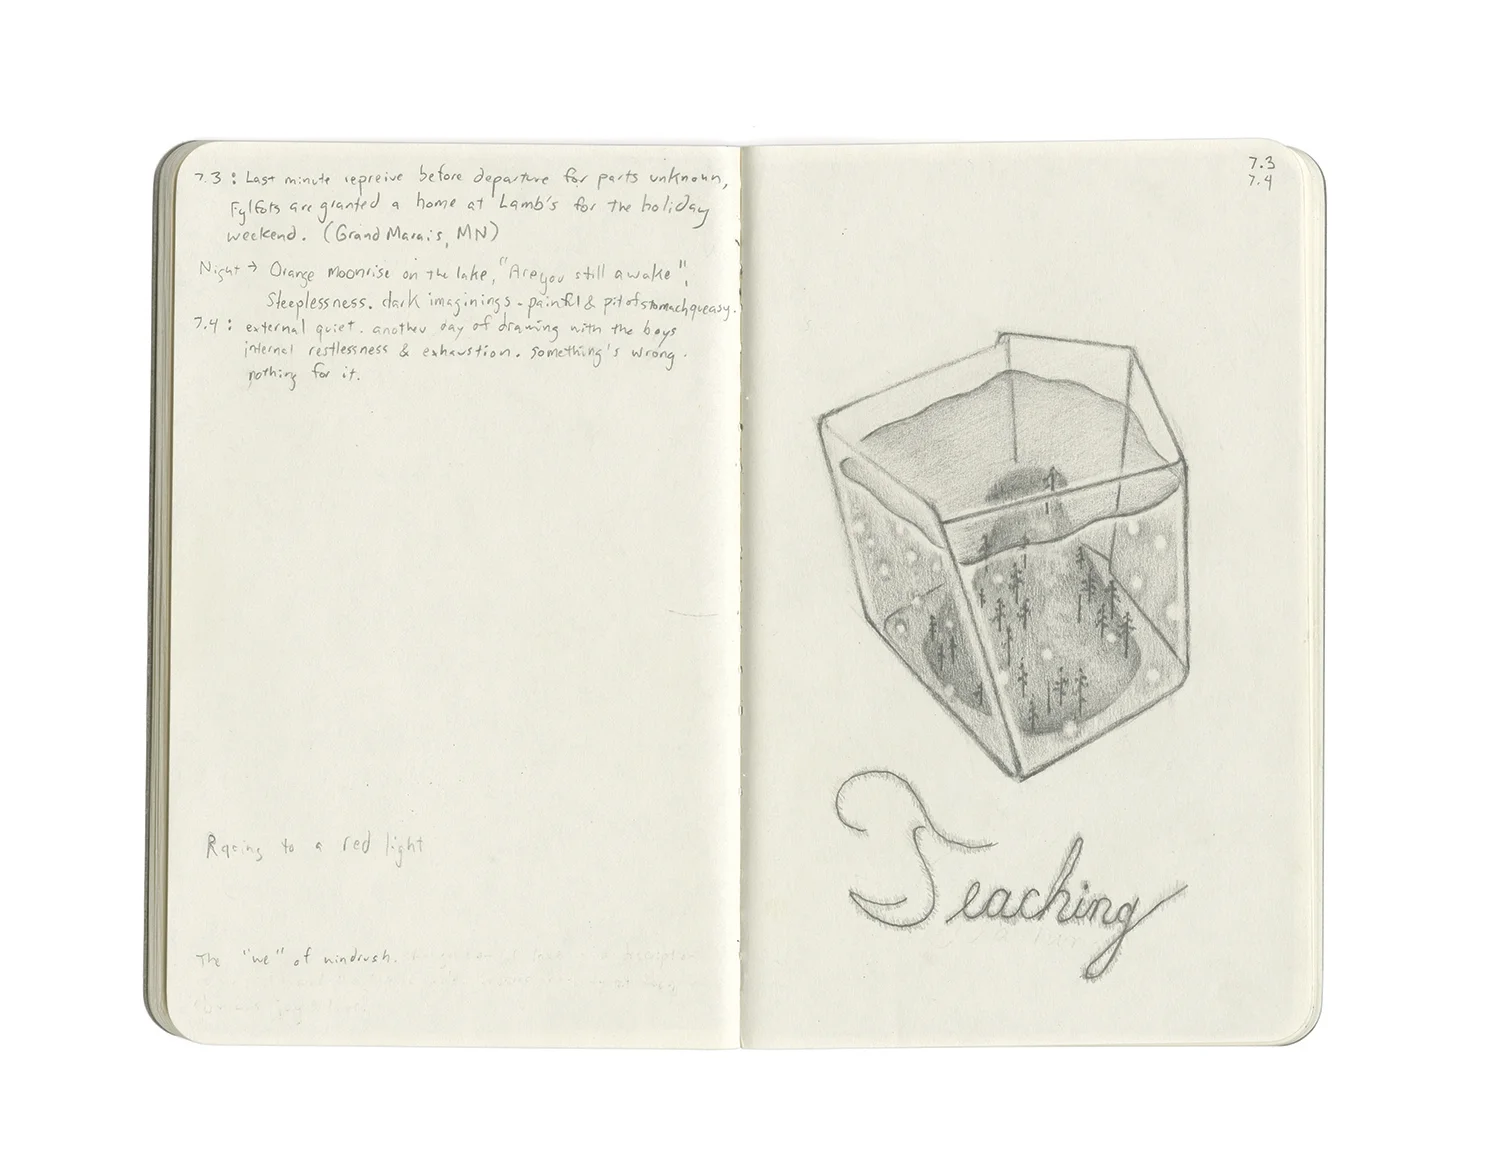 7.3 : Last minute repreive before departure for parts unknown,
Fylfots are granted a home at Lamb's for the holiday
weekend. (Grand Marais, MN)
Night → Orange moonrise on the lake, "Are you still awake",
Sleeplessness. dark imaginings - painful & pit of stomach queasy.
7.4 : external quiet. another day of drawing with the boys
internal restlessness & exhaustion. something's wrong.
nothing for it.
Racing to a red light
The "we" of windrush.
7.3
7.4
Teaching